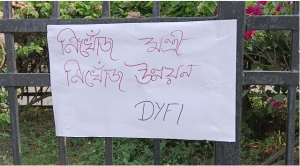 নিখোঁজ মন্ত্রী
নিখোঁজ উন্নয়ন
DYFI